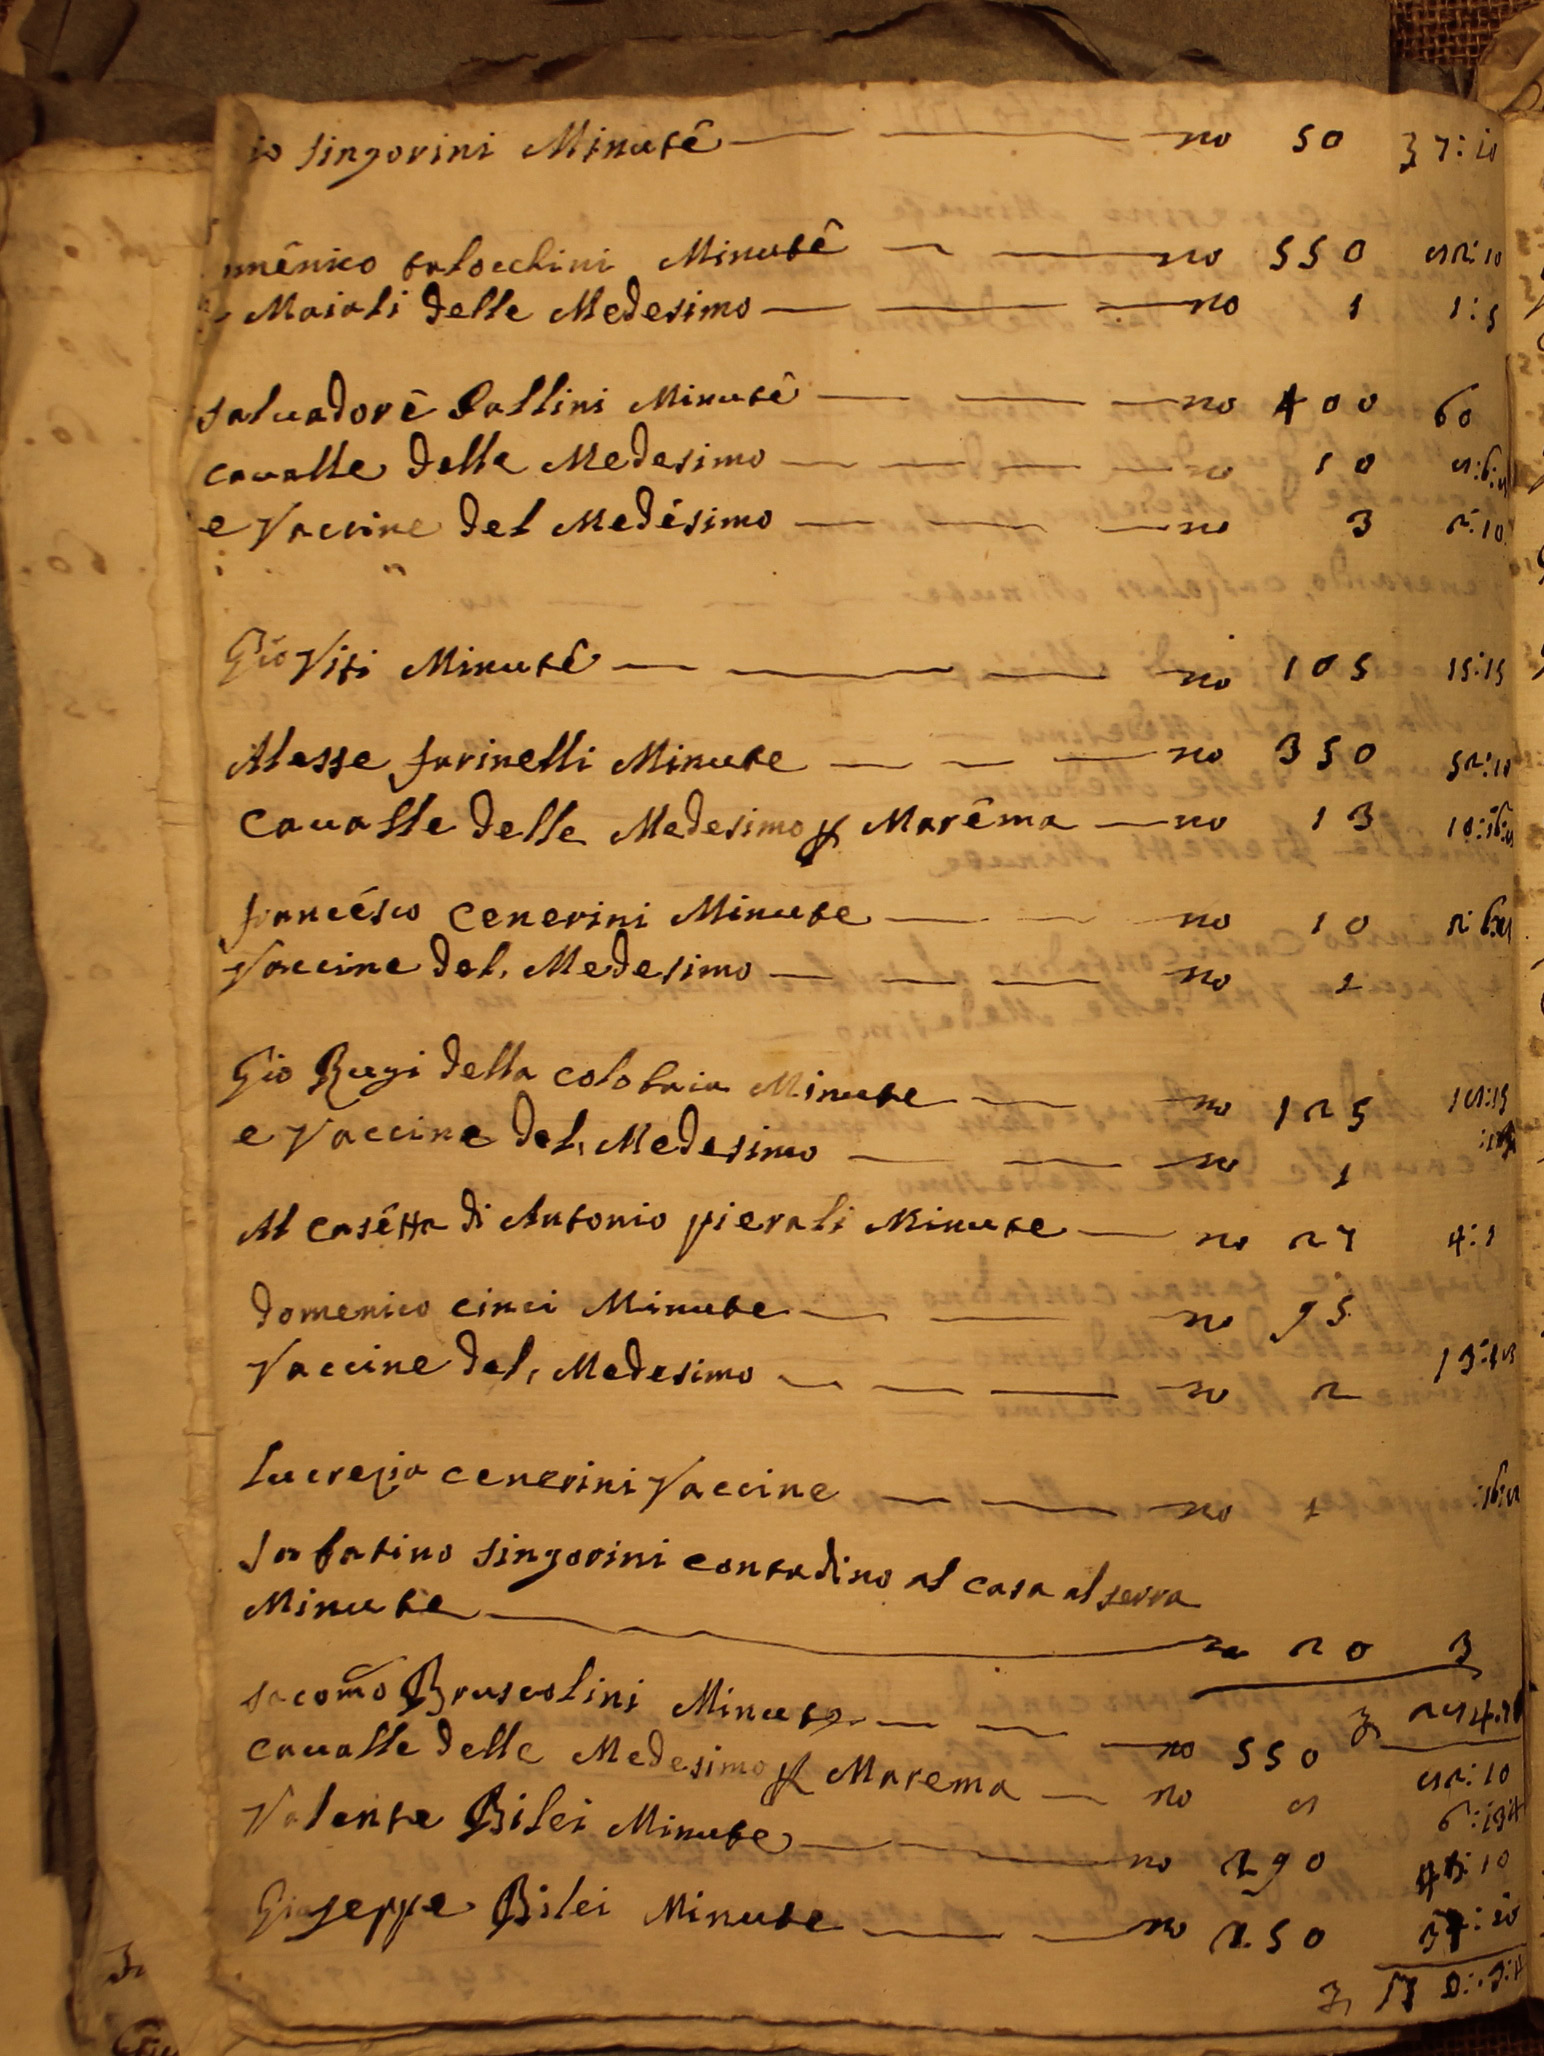 io singorini Minutê no 50 37:10
mênico talocchini Minutê no 550 82:10
Maiali delle Medesimo no 1 1:5
salvadorê Ballini Minutê no 400 60
cavalle delle Medesimo no 10 8:6:8
e Vaccine del Medésimo no 3 2:10
Gio Viti Minutê no 105 15:15
Alesse farinelli Minute no 350 52:10
Cavalle delle Medesimo p Marêma no 13 10:16:8
francésco Cenerini Minute no 10
Vaccine del, Medesimo no 1
Gio Rugi della colobaia Minute no 125 18:15
e Vaccine del, Medesimo no 1
Al casêtta di Antonio pierali Minute no 27 4:1
domenico cinci Minute no 95
Vaccine del, Medesimo no 2
Lucrezia cenerini Vaccine no 1 :16:8
sabatino singorini contadino al casa al serra
Minute no 20 3
Jacomo Bruscolini Minute no 550 82:10
Cavalle delle Medesimo p Marema no 8 6:13:4
Valente Bilei Minute no 290 43:10
Giuseppe Bilei Minute no 250 37:10